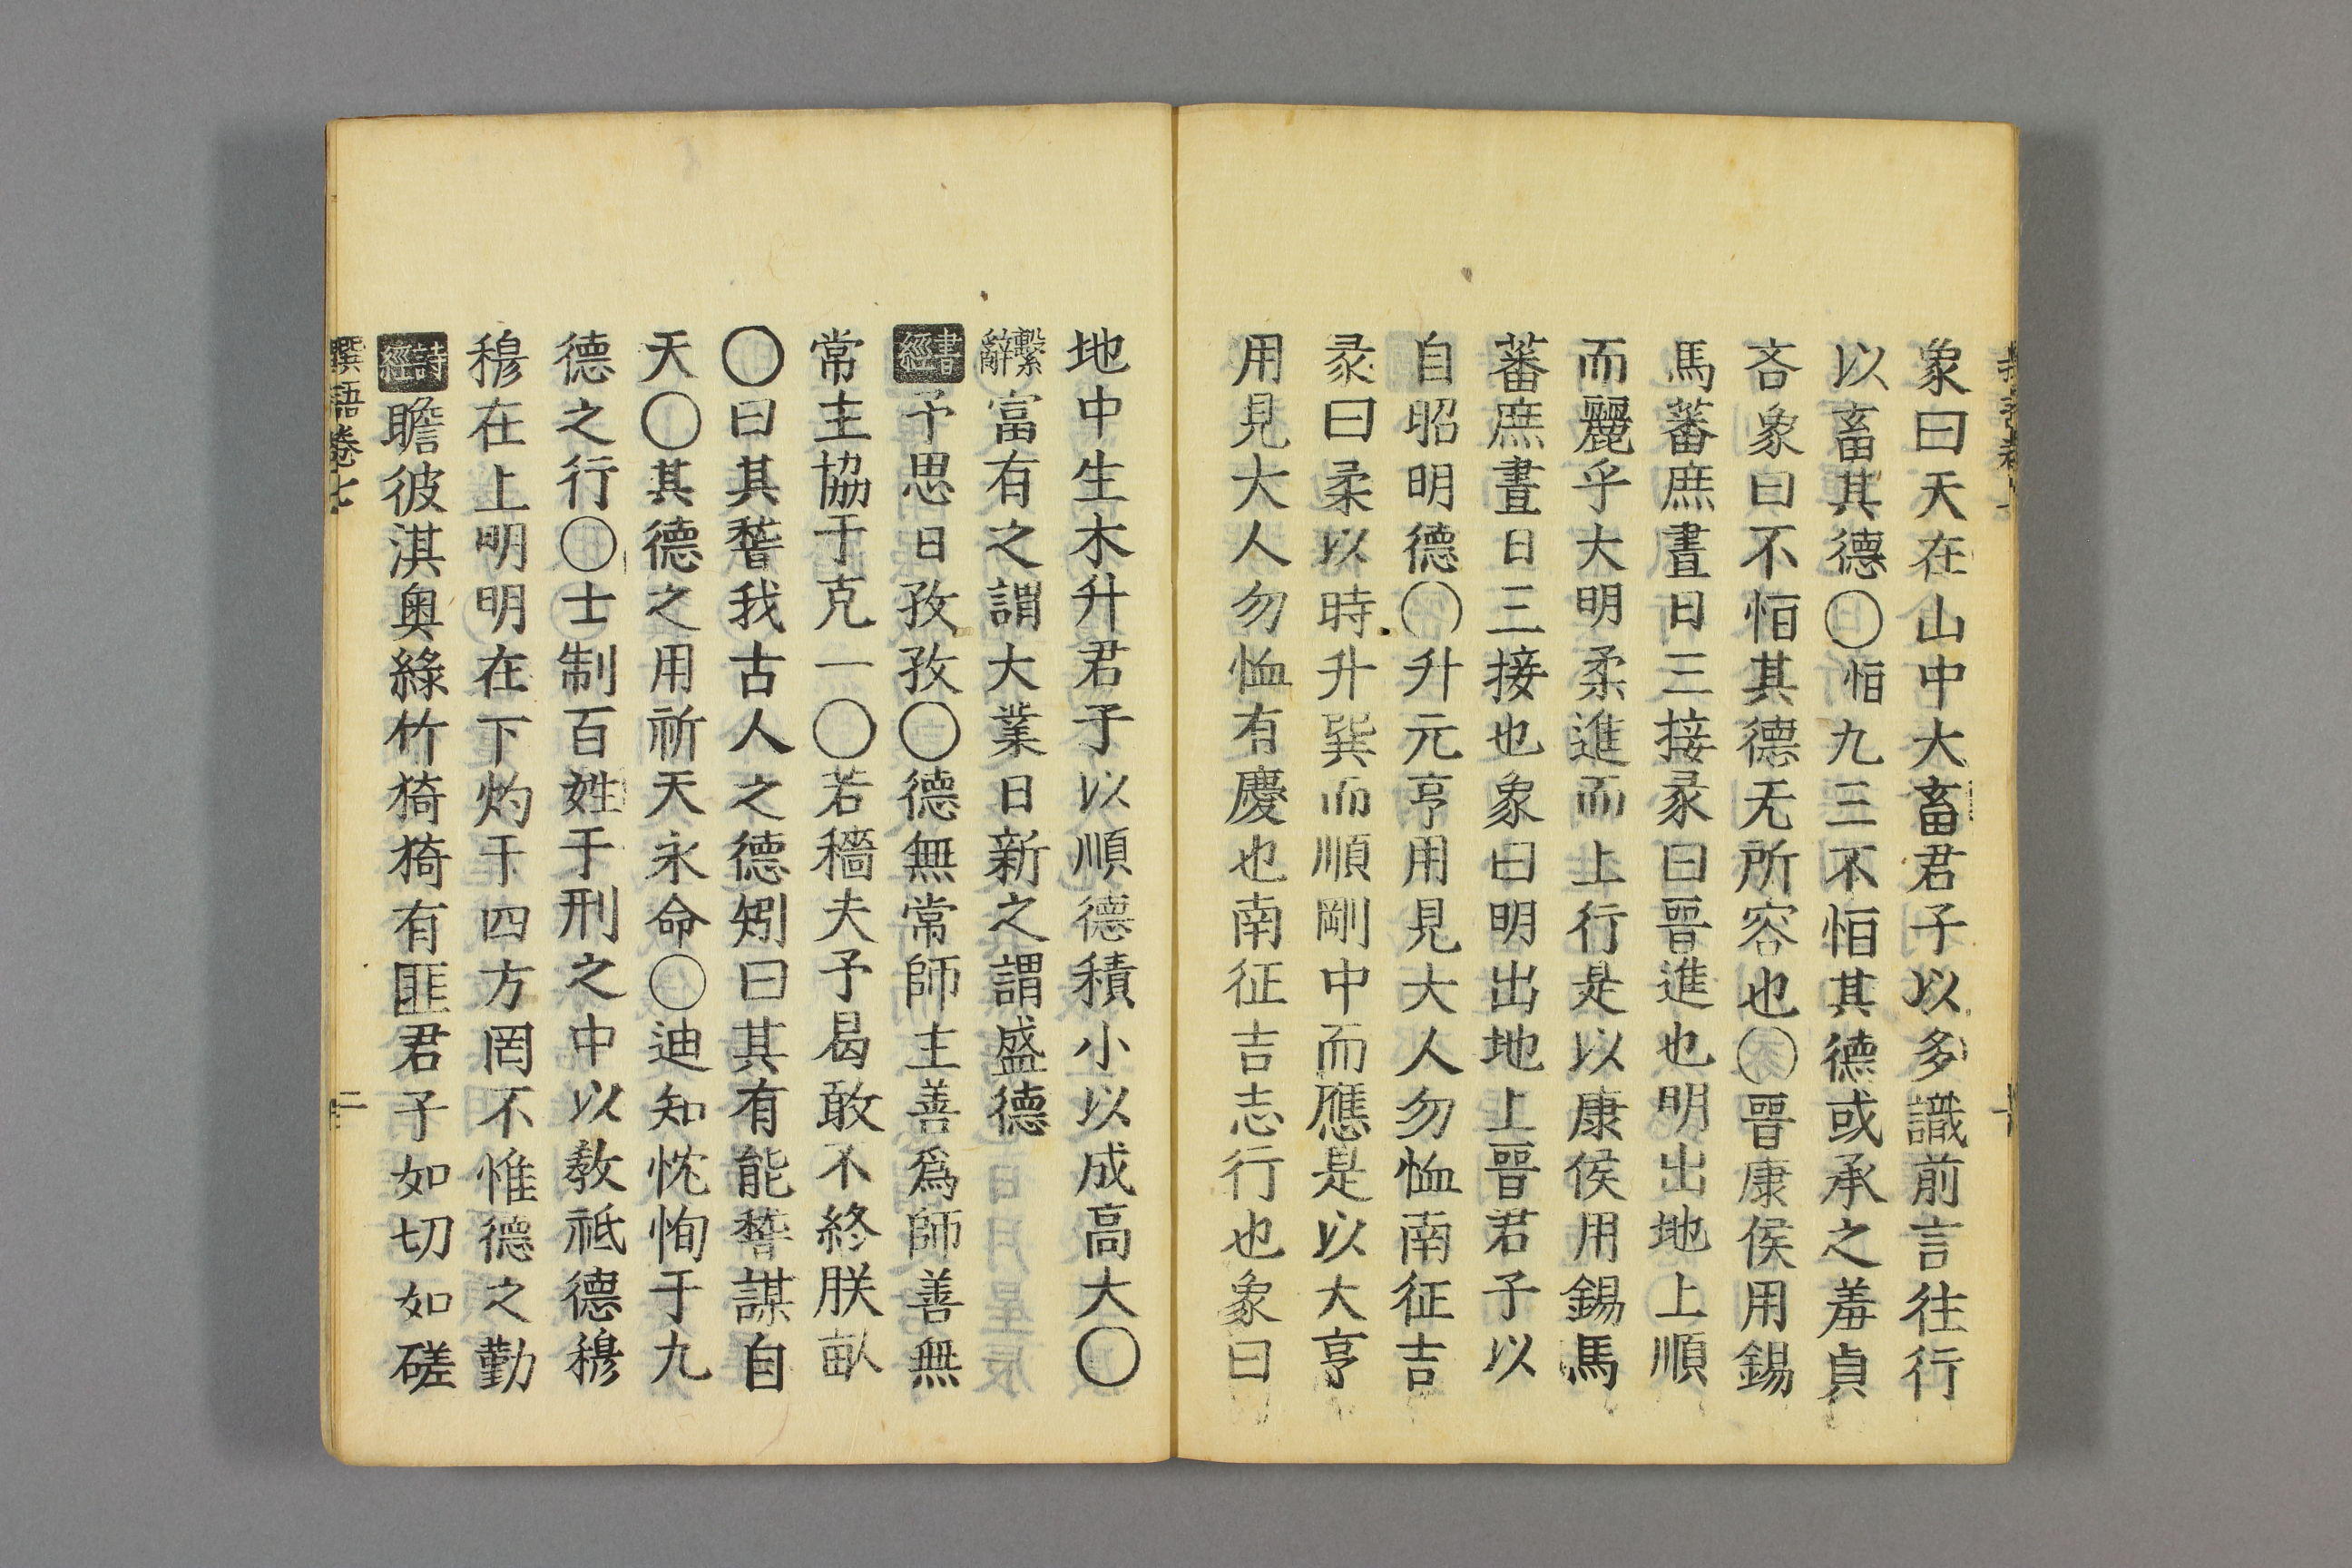 象曰天在山中大畜君子以多識前言往行
以畜其德〇恒九三不恒其德或承之羞貞
吝象曰不恒其德无所容也〇晉康侯用錫
馬蕃庶晝日三接彖曰晉進也明出地上順
而麗乎大明柔進而上行是以康侯用錫馬
蕃庶晝日三接也象曰明出地上晉君子以
自昭明德〇升元亨用見大人勿恤南征吉
彖曰柔以時升巽而順剛中而應是以大亨
用見大人勿恤有慶也南征吉志行也象曰
地中生木升君子以順德積小以成高大〇
繫辭富有之謂大業日新之謂盛德
書經予思日孜孜〇德無常師主善爲師善無
常主協于克一〇若穡夫予曷敢不終朕畝
〇曰其稽我古人之德矧曰其有能稽謀自
天〇其德之用祈天永命〇迪知忱恂于九
德之行〇士制百姓于刑之中以敎祗德穆
穆在上明明在下灼于四方罔不惟德之勤
詩經瞻彼淇奧綠竹猗猗有匪君子如切如磋
撰語卷七 二